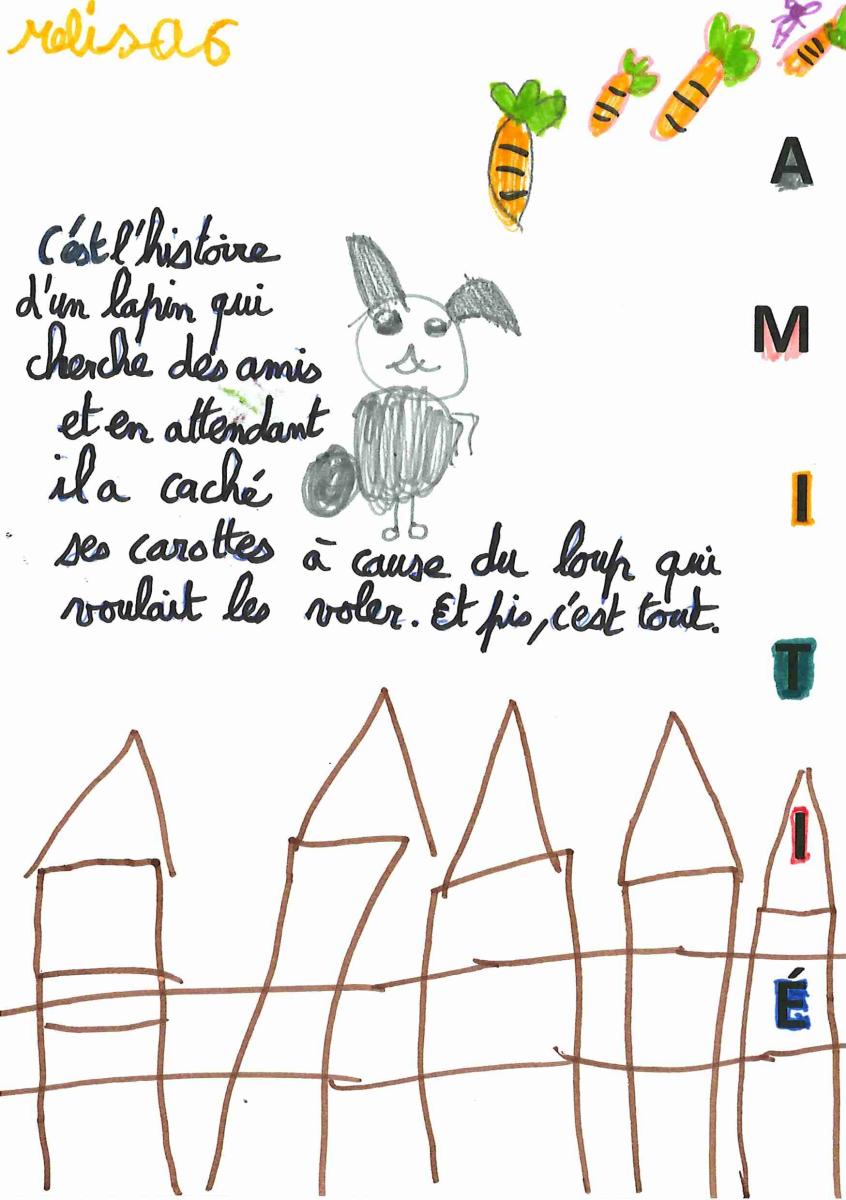 melisa 6
C'est l'histoire
d'un lapin qui
cherche des amis
et en attendant
il a caché
ses carottes à cause du loup qui
voulait les voler. Et pis, c'est tout.
A
M
I
T
I
É